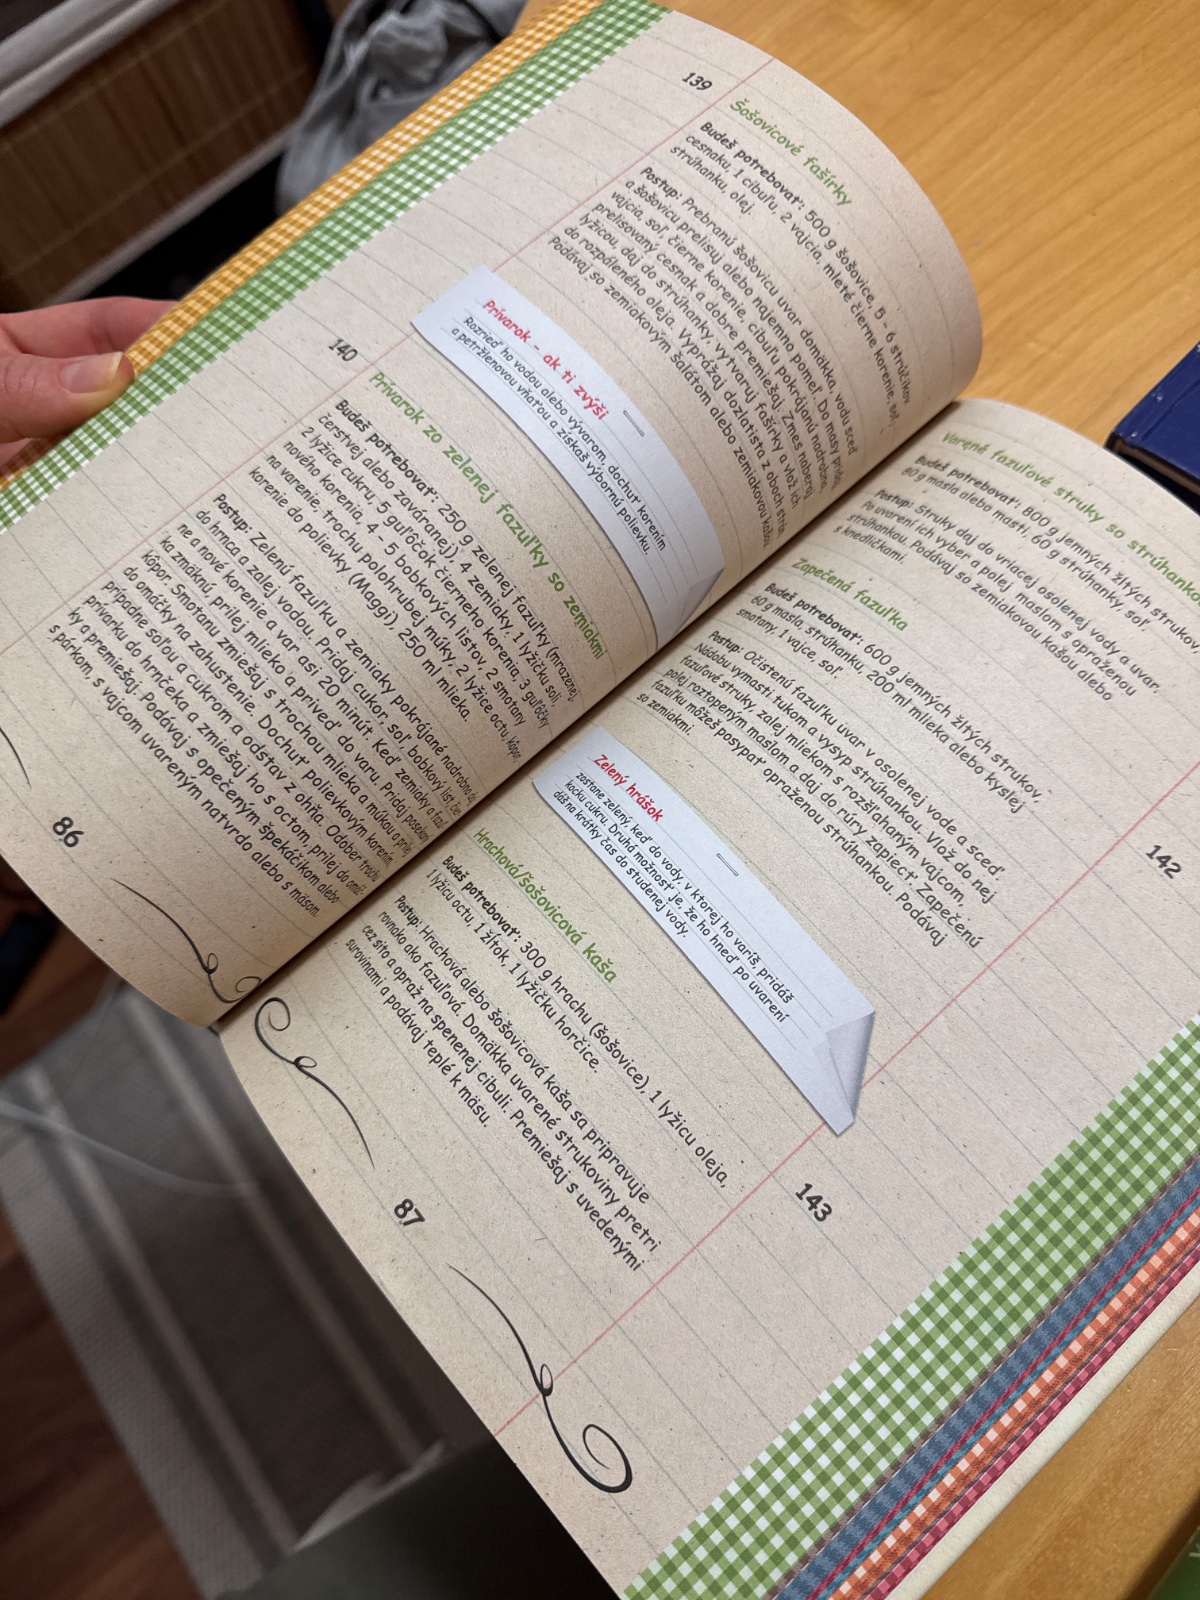 139
Šošovicové fašírky
Budeš potrebovať: 500 g šošovice, 5 - 6 strúčikov
cesnaku, 1 cibuľu, 2 vajcia, mleté čierne korenie, soľ,
strúhanku, olej.
Postup: Prebranú šošovicu uvar domäkka, vodu sceď
a šošovicu prelisuj alebo najemno pomeľ. Do masy pridaj
vajcia, soľ, čierne korenie, cibuľu pokrájanú nadrobno,
prelisovaný cesnak a dobre premiešaj. Zmes naberaj
lyžicou, daj do strúhanky, vytvaruj fašírky a vlož ich
do rozpáleného oleja. Vyprážaj dozlatista z oboch strán.
Podávaj so zemiakovým šalátom alebo zemiakovou kašou.
Prívarok - ak ti zvýši
Rozrieď ho vodou alebo vývarom, dochuť korením
a petržlenovou vňaťou a získaš výbornú polievku.
140
Prívarok zo zelenej fazuľky so zemiakmi
Budeš potrebovať: 250 g zelenej fazuľky (mrazenej,
čerstvej alebo zaváranej), 4 zemiaky, 1 lyžičku soli,
2 lyžice cukru, 5 guľôčok čierneho korenia, 3 guľôčky
nového korenia, 4 - 5 bobkových listov, 2 smotany
na varenie, trochu polohrubej múky, 2 lyžice octu, kôpor,
korenie do polievky (Maggi), 250 ml mlieka.
Postup: Zelenú fazuľku a zemiaky pokrájané nadrobno daj
do hrnca a zalej vodou. Pridaj cukor, soľ, bobkový list, čier-
ne a nové korenie a var asi 20 minút. Keď zemiaky a fazuľ-
ka zmäknú, prilej mlieko a priveď do varu. Pridaj posekaný
kôpor. Smotanu zmiešaj s trochou mlieka a múkou a prilej
do omáčky na zahustenie. Dochuť polievkovým korením,
prípadne soľou a cukrom a odstav z ohňa. Odober trochu
prívarku do hrnčeka a zmiešaj ho s octom, prilej do omáč-
ky a premiešaj. Podávaj s opečeným špekáčikom alebo
s párkom, s vajcom uvareným natvrdo alebo s mäsom.
86
Varené fazuľové struky so strúhanko
Budeš potrebovať: 800 g jemných žltých strukov,
80 g masla alebo masti, 60 g strúhanky, soľ.
Postup: Struky daj do vriacej osolenej vody a uvar.
Po uvarení ich vyber a polej maslom s opraženou
strúhankou. Podávaj so zemiakovou kašou alebo
s knedličkami.
142
Zapečená fazuľka
Budeš potrebovať: 600 g jemných žltých strukov,
60 g masla, strúhanku, 200 ml mlieka alebo kyslej
smotany, 1 vajce, soľ.
Postup: Očistenú fazuľku uvar v osolenej vode a sceď.
Nádobu vymasti tukom a vysyp strúhankou. Vlož do nej
fazuľové struky, zalej mliekom s rozšľahaným vajcom,
polej roztopeným maslom a daj do rúry zapiecť. Zapečenú
fazuľku môžeš posypať opraženou strúhankou. Podávaj
so zemiakmi.
Zelený hrášok
zostane zelený, keď do vody, v ktorej ho varíš, pridáš
kocku cukru. Druhá možnosť je, že ho hneď po uvarení
dáš na krátky čas do studenej vody.
143
Hrachová/šošovicová kaša
Budeš potrebovať: 300 g hrachu (šošovice), 1 lyžicu oleja,
1 lyžicu octu, 1 žĺtok, 1 lyžičku horčice.
Postup: Hrachová alebo šošovicová kaša sa pripravuje
rovnako ako fazuľová. Domäkka uvarené strukoviny pretri
cez sito a opraž na spenenej cibuli. Premiešaj s uvedenými
surovinami a podávaj teplé k mäsu.
87